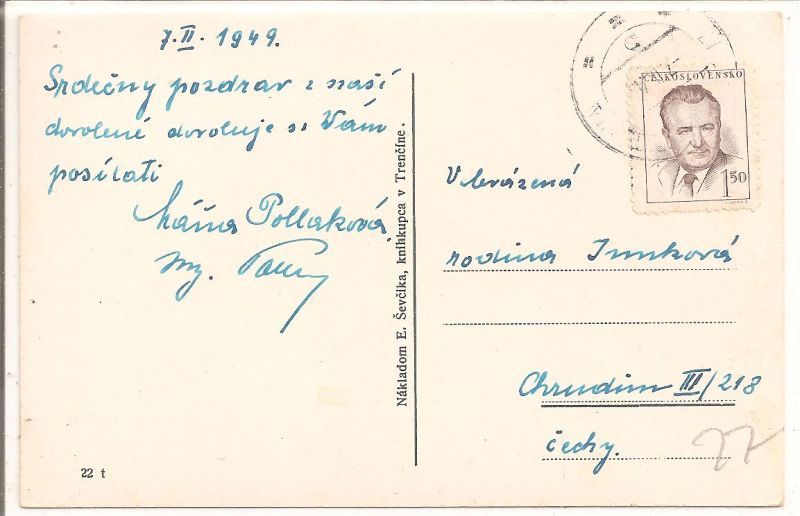 7. II. 1949.
Srdečný pozdrav z naší
dovolené dovoluje si Vám
posílati
Máňa Pollaková
Nákladom E. Ševčíka, kníhkupca v Trenčíne.
22 t
ČESKOSLOVENSKO
1 50
Vbevážená
rodina
Chrudim III/218
Čechy.
77